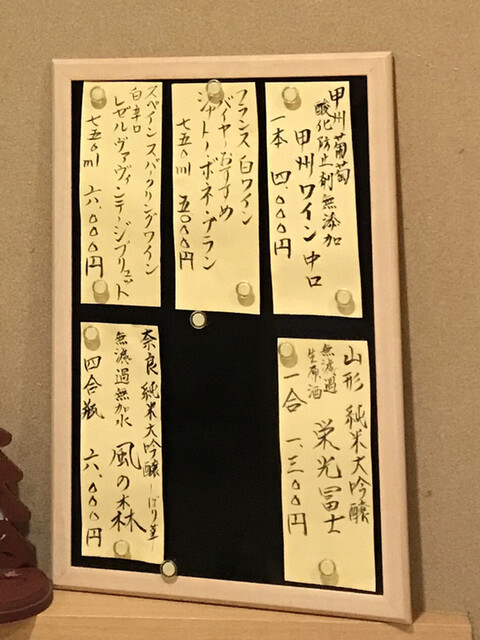 甲州葡萄
酸化防止剤無添加
甲州ワイン 中口
一本 四、〇〇〇円
フランス 白ワイン
バイヤーおすすめ
シャトーボネ・ブラン
七五〇ml 五〇〇〇円
スペイン スパークリングワイン
白辛口
レゼルヴァヴィンテージブリュット
七五〇ml 六、〇〇〇円
山形 純米大吟醸
無濾過
生原酒
栄光冨士
一合 一、三〇〇円
奈良 純米大吟醸 しぼり華
無濾過無加水
風の森
四合瓶 六、〇〇〇円